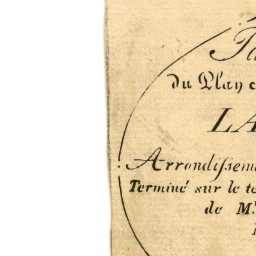 du Plan
LA
Arrondissem
Terminé sur le te
de M.